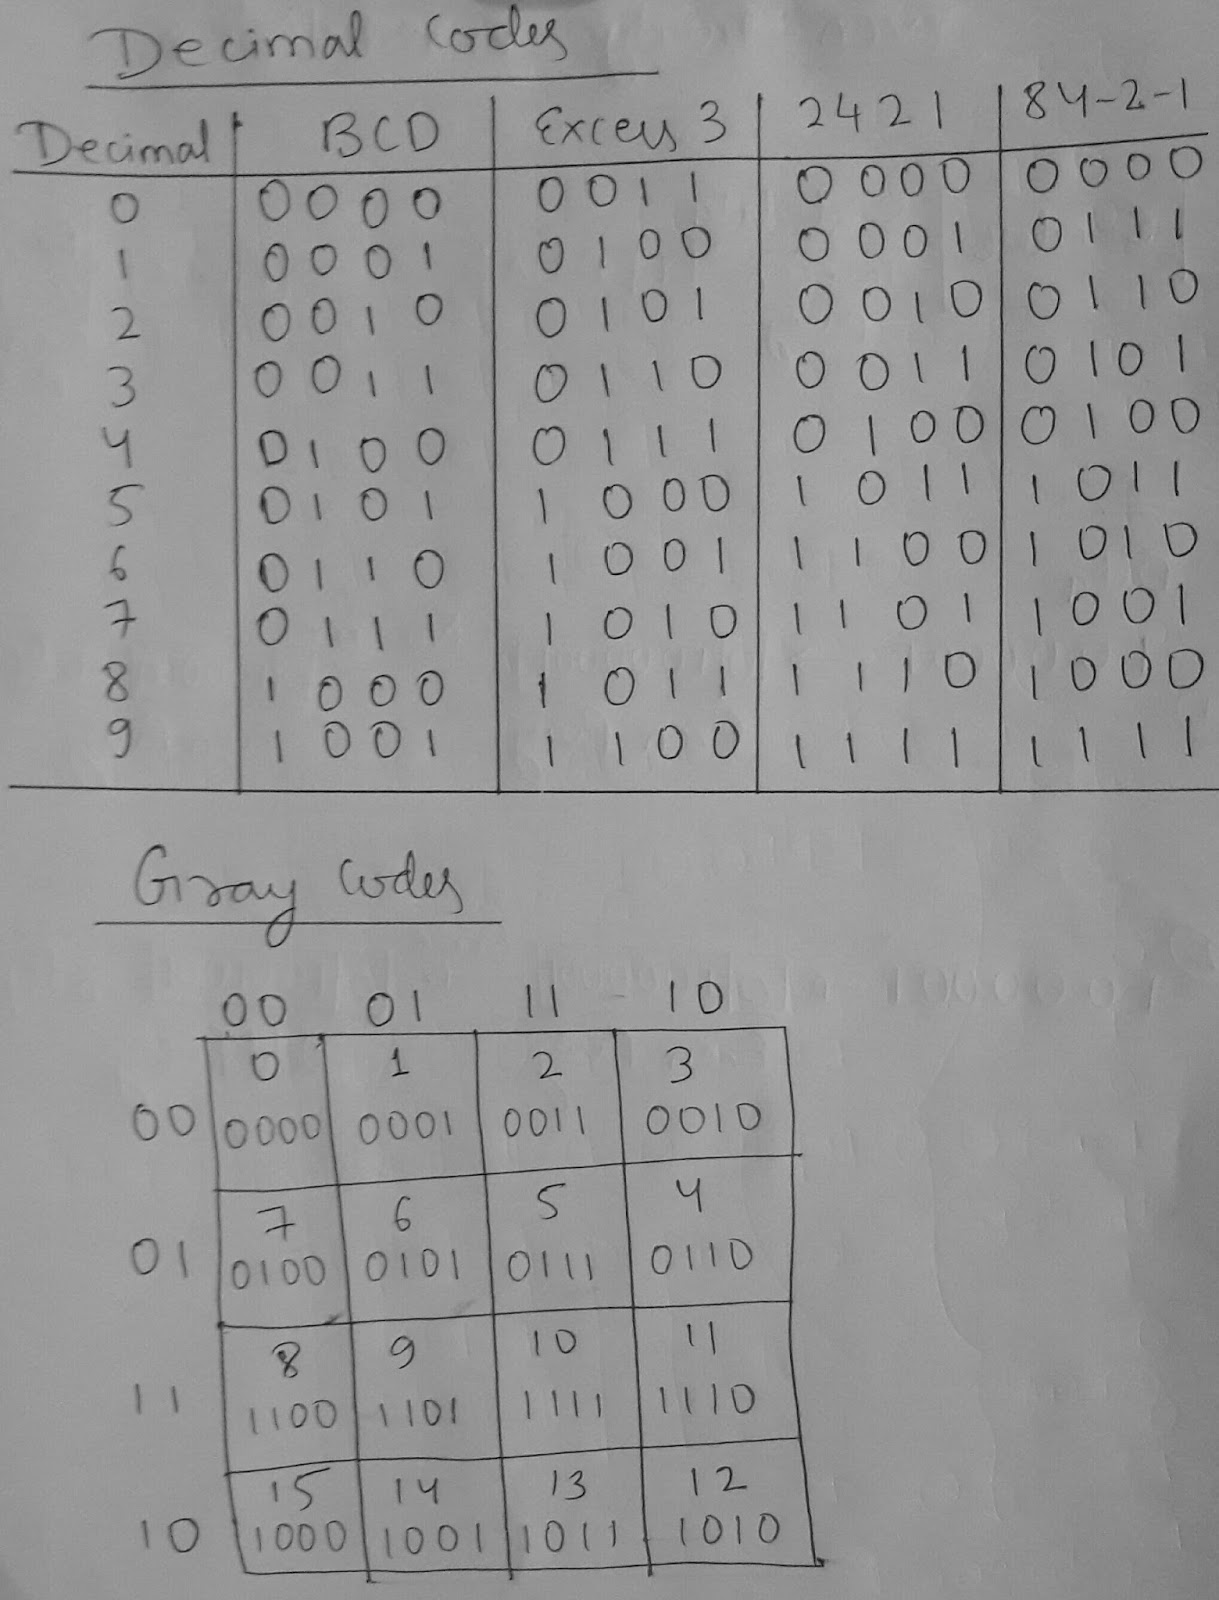 Decimal Codes
Decimal BCD Excess 3 2421 84-2-1
0 0000 0011 0000 0000
1 0001 0100 0001 0111
2 0010 0101 0010 0110
3 0011 0110 0011 0101
4 0100 0111 0100 0100
5 0101 1000 1011 1011
6 0110 1001 1100 1010
7 0111 1010 1101 1001
8 1000 1011 1110 1000
9 1001 1100 1111 1111
Gray Codes
00 01 11 10
0 1 2 3
00 0000 0001 0011 0010
7 6 5 4
01 0100 0101 0111 0110
8 9 10 11
11 1100 1101 1111 1110
15 14 13 12
10 1000 1001 1011 1010